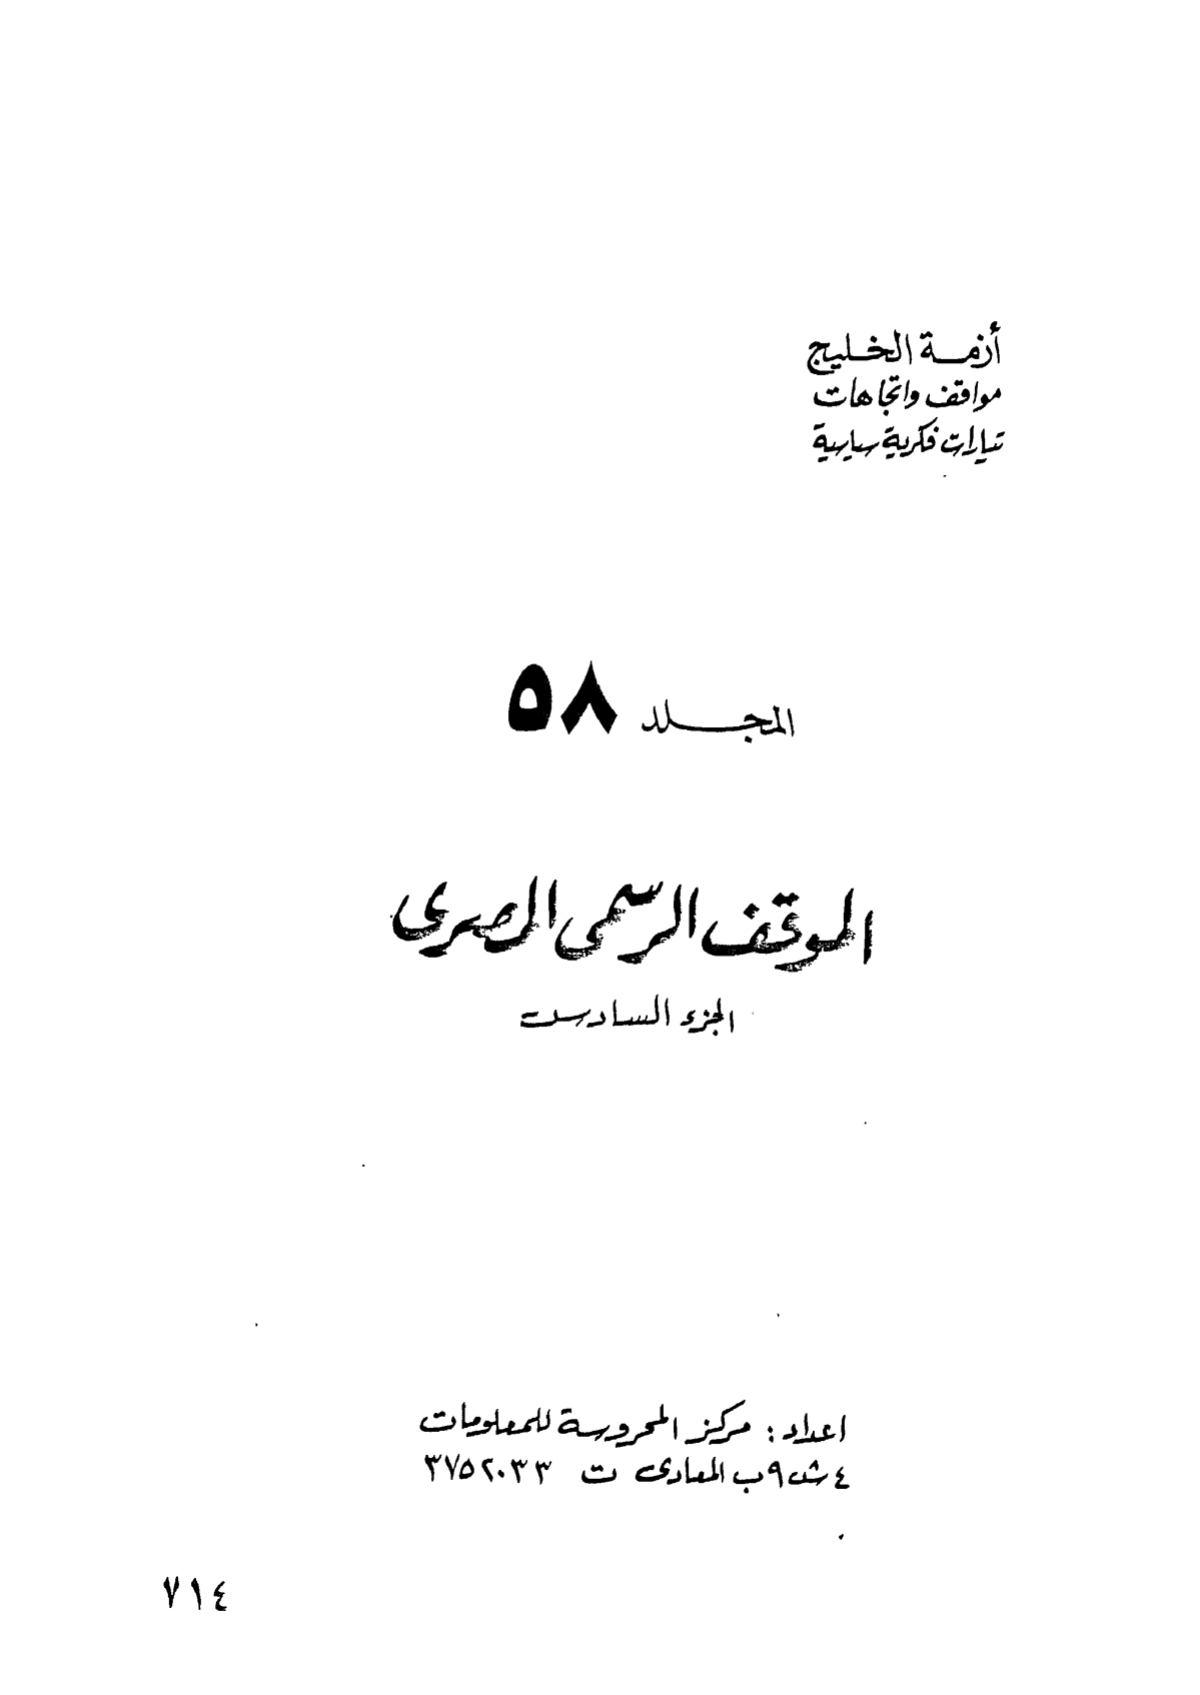 أزمة الخليج
مواقف واتجاهات
تيارات فكرية سياسية
المجلد ٥٨
الموقف الرسمى المصرى
الجزء السادس
اعداد : مركز المحروسة للمعلومات
٤ ش ٩ ب المعادى ت ٣٧٥٢٠٣٣
٧١٤